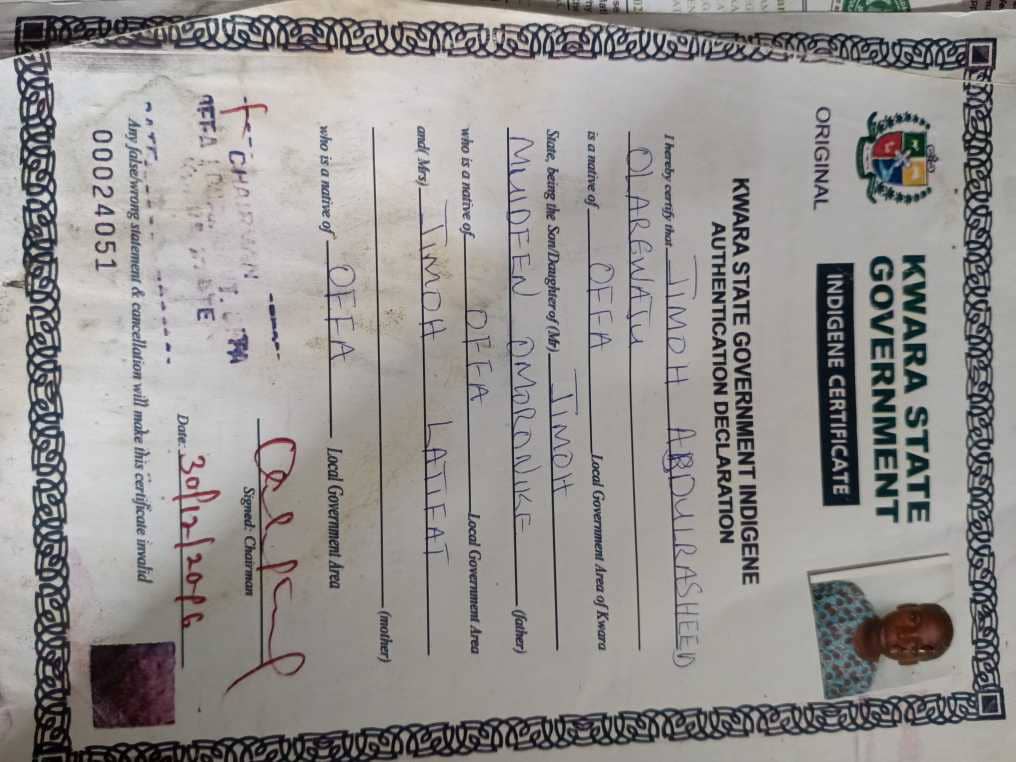 KWARA STATE
GOVERNMENT
ORIGINAL
INDIGENE CERTIFICATE
KWARA STATE GOVERNMENT INDIGENE
AUTHENTICATION DECLARATION
I hereby certify that JIMOH ABDULRASHEED
OLAREWAJU
is a native of OFFA Local Government Area of Kwara
State, being the Son/Daughter of (Mr) JIMOH
MUDEEN OMORONIKE (father)
who is a native of OFFA Local Government Area
and( Mrs) JIMOH LATIFAT
(mother)
who is a native of OFFA Local Government Area
CHAIRMAN
OFFA
Signed: Chairman
Date: 30/12/20
Any false/wrong statement & cancellation will make this certificate invalid
00024051